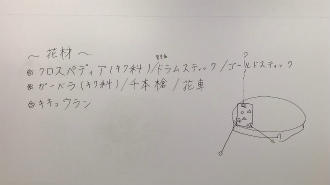 ～花材～
◎クロスペディア(キク科)/ドラムスティック/ゴールドスティック
◎ガーベラ(キク科)/千本槍/花車
◎キキョウラン